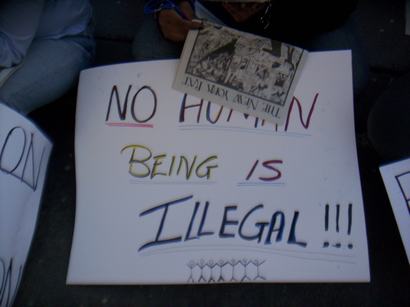 NO HUMAN
BEING IS
ILLEGAL!!!
THE NEW YORK RAT
ON
ON